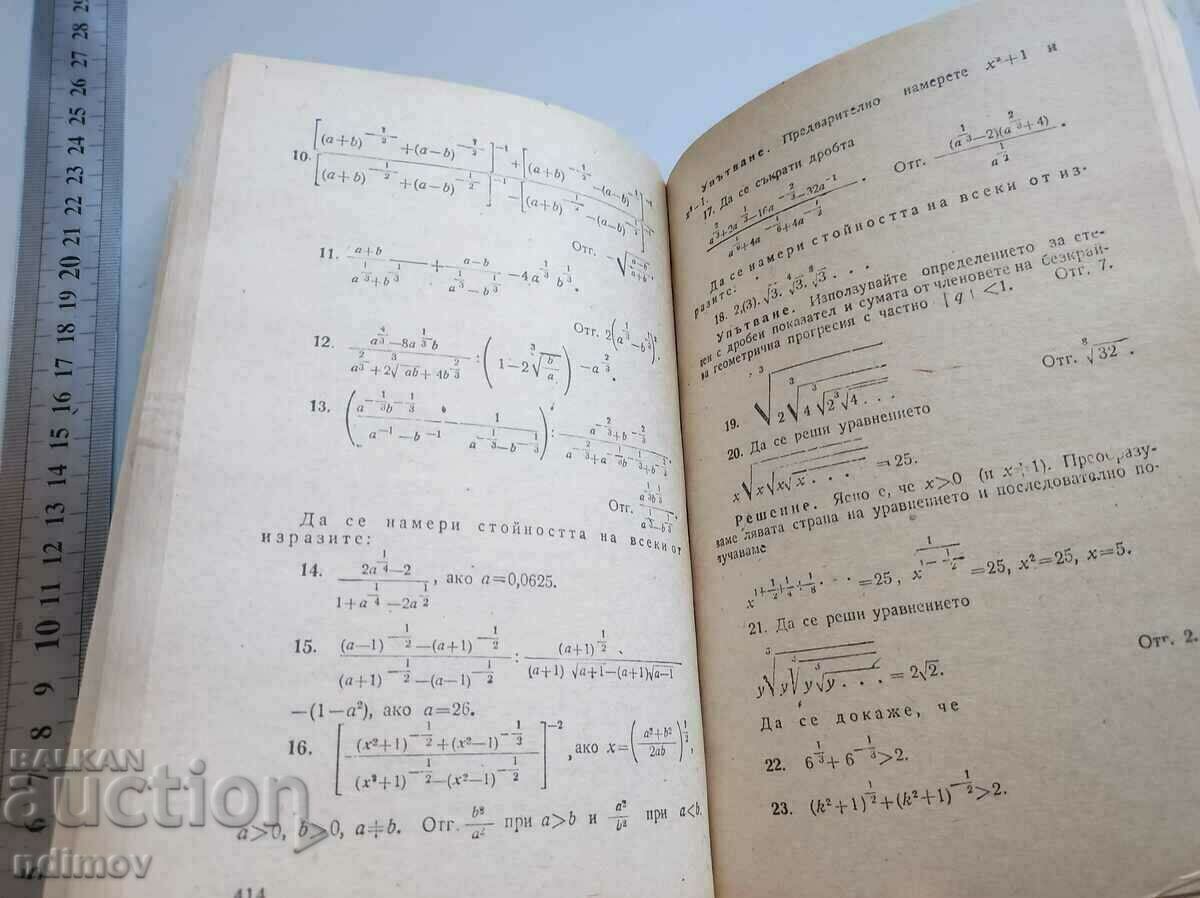 10. [(a+b)^{-1/2}+(a−b)^{-1/2}]^{-1}+[(a+b)^{-1/2}−(a−b)^{-1/2}]^{-1} / [(a+b)^{-1/2}+(a−b)^{-1/2}]^{-1}−[(a+b)^{-1/2}−(a−b)^{-1/2}]^{-1}
Отг. −√((a−b)/(a+b)).
11. (a+b)/(a^{1/3}+b^{1/3}) + (a−b)/(a^{1/3}−b^{1/3}) −4a^{1/3}b^{1/3}.
Отг. 2(a^{1/3}−b^{1/3})².
12. (a^{4/3}−8a^{1/3}b)/(a^{2/3}+2∛ab+4b^{2/3}) : (1−2∛(b/a))−a^{2/3}.
13. ((a^{-1/3}b^{-1/3})/(a^{-1}−b^{-1}) − 1/(a^{-1/3}−b^{-1/3})) : (a^{-2/3}+b^{-2/3})/(a^{-2/3}+a^{-1/3}b^{-1/3}+b^{-2/3}).
Отг. (a^{1/3}b^{1/3})/(a^{1/3}−b^{1/3}).
Да се намери стойността на всеки от
изразите:
14. (2a^{1/4}−2)/(1+a^{1/4}−2a^{1/2}), ако a=0,0625.
15. ((a−1)^{-1/2}−(a+1)^{-1/2})/((a+1)^{-1/2}−(a−1)^{-1/2}) : (a+1)^{1/2}/((a+1)√a+1−(a+1)√a−1)
−(1−a²), ако a=26.
16. [((x²+1)^{-1/2}+(x²−1)^{-1/3})/((x²+1)^{-1/2}−(x²−1)^{-1/2})]^{-2}, ако x=((a²+b²)/2ab)^{1/2},
a>0, b>0, a≠b. Отг. b²/a² при a>b и a²/b² при a<b.
414
Упътване. Предварително намерете x²+1 и
x²−1.
17. Да се съкрати дробта
(a^{2/3}+2a^{1/3}−16a^{-2/3}−32a^{-1})/(a^{1/6}+4a^{-1/6}+4a^{-1/2}). Отг. (a^{1/3}−2)(a^{2/3}+4)/a^{1/2}.
Да се намери стойността на всеки от из-
разите:
18. 2,(3).√3.⁴√3.⁸√3. . . . Отг. 7.
Упътване. Използувайте определението за сте-
пен с дробен показател и сумата от членовете на безкрай-
на геометрична прогресия с частно |q|<1.
19. ∛2∛4∛2∛4. . . Отг. ⁸√32.
20. Да се реши уравнението
x√x√x√x. . . =25.
Решение. Ясно е, че x>0 (и x≠1). Преобразу-
ваме лявата страна на уравнението и последователно по-
лучаваме
x^{1+1/2+1/4+1/8...}=25, x^{1/(1−1/2)}=25, x²=25, x=5.
21. Да се реши уравнението
y∛y∛y∛y. . . =2√2. Отг. 2.
Да се докаже, че
22. 6^{1/3}+6^{-1/3}>2.
23. (k²+1)^{1/2}+(k²+1)^{-1/2}>2.
30
29
28
27
26
25
24
23
22
21
20
19
18
17
16
15
14
13
12
11
10
9
8
7
6
BALKAN
auction
ndimov